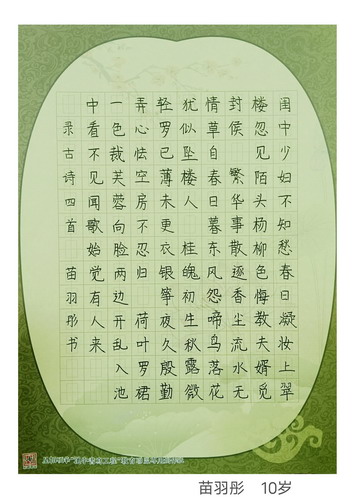 闺中少妇不知愁春日凝妆上翠
楼忽见陌头杨柳色悔教夫婿觅
封侯 繁华事散逐香尘流水无
情草自春日暮东风怨啼鸟落花
犹似坠楼人 桂魄初生秋露微
轻罗已薄未更衣银筝夜久殷勤
弄心怯空房不忍归 荷叶罗裙
一色裁芙蓉向脸两边开乱入池
中看不见闻歌始觉有人来
录古诗四首 苗羽彤书
苗羽彤 10岁